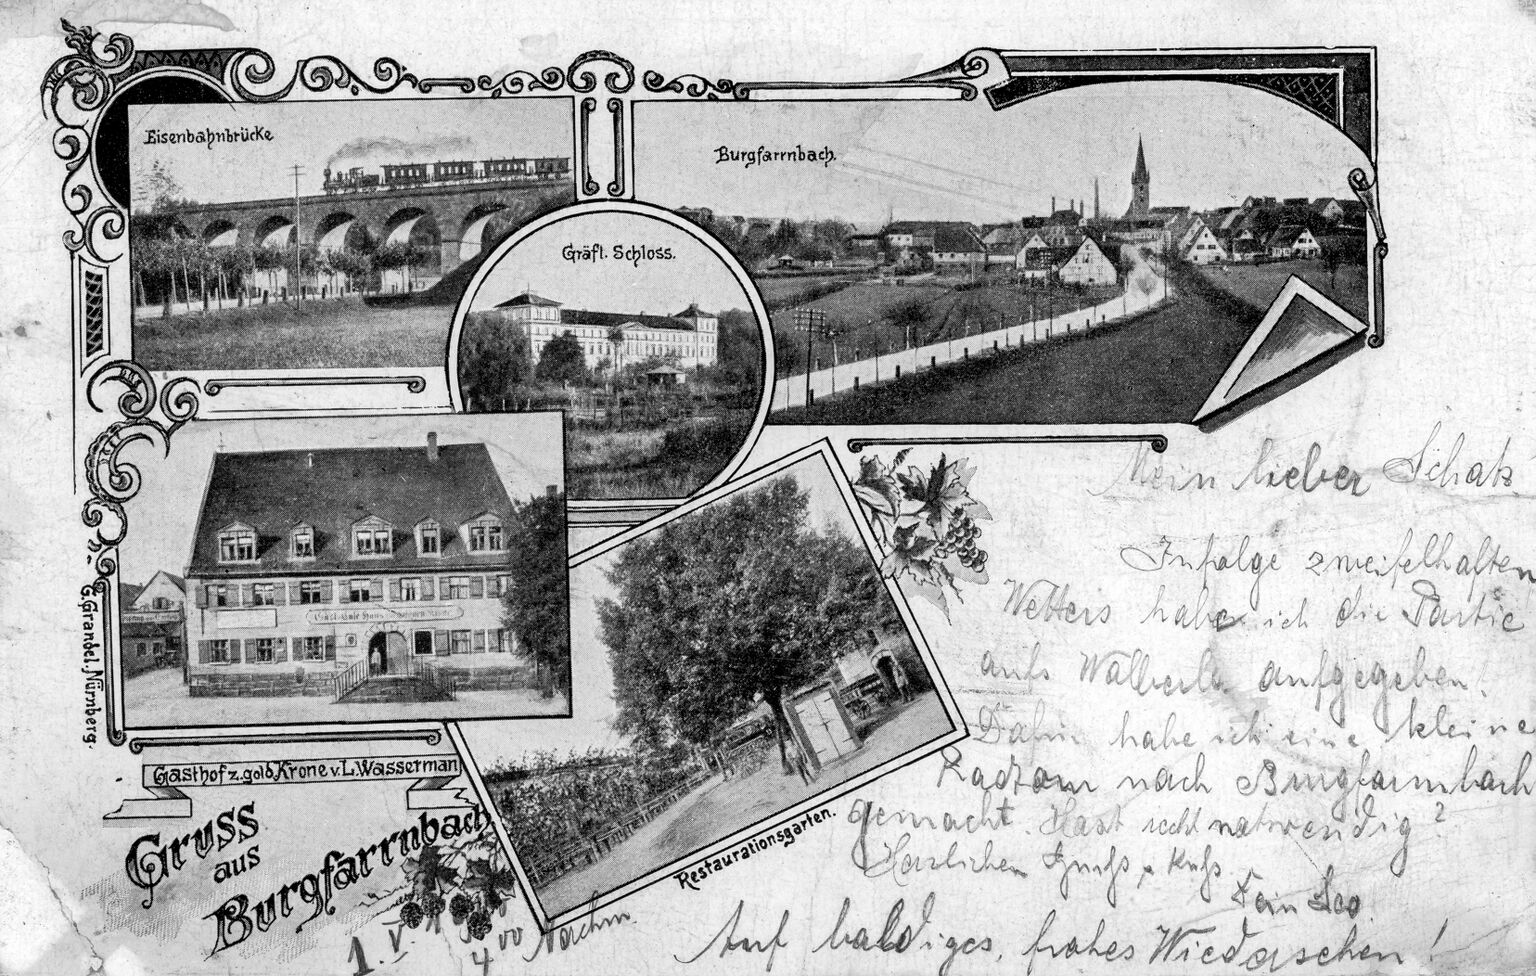 Eisenbahnbrücke
Burgfarrnbach.
Gräfl. Schloss.
G. Grandel, Nürnberg.
Gasthof z. gold. Krone v. L. Wasserman
Gruss
aus
Burgfarrnbach
Restaurationsgarten.
Mein lieber Schatz
Infolge zweifelhaften
Wetters habe ich die Partie
aufs Walberla aufgegeben.
Dafür habe ich eine kleine
Radtour nach Burgfarrnbach
gemacht. Hast recht notwendig?
Herzlichen Gruß & Kuß
Dein Leo.
Auf baldiges, frohes Wiedersehen!
1. V.
4 00 Nachm.